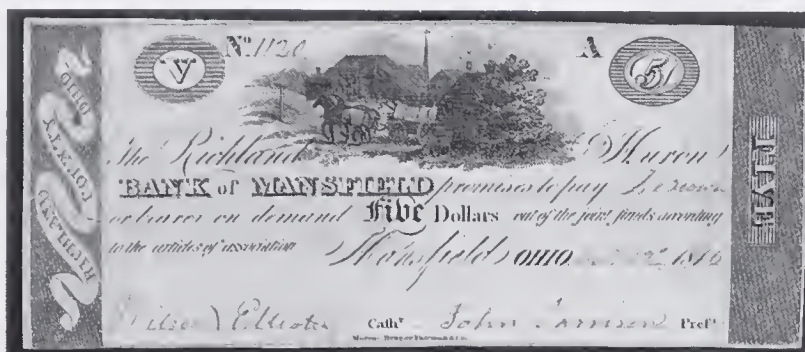 V Nº 1120 A 5
RICHLAND COUNTY OHIO
The Richland & Huron
BANK of MANSFIELD promises to pay
or bearer on demand Five Dollars out of the joint funds according
to the articles of association Mansfield OHIO 1816
FIVE
Wilson Elliott Cashr John Presr